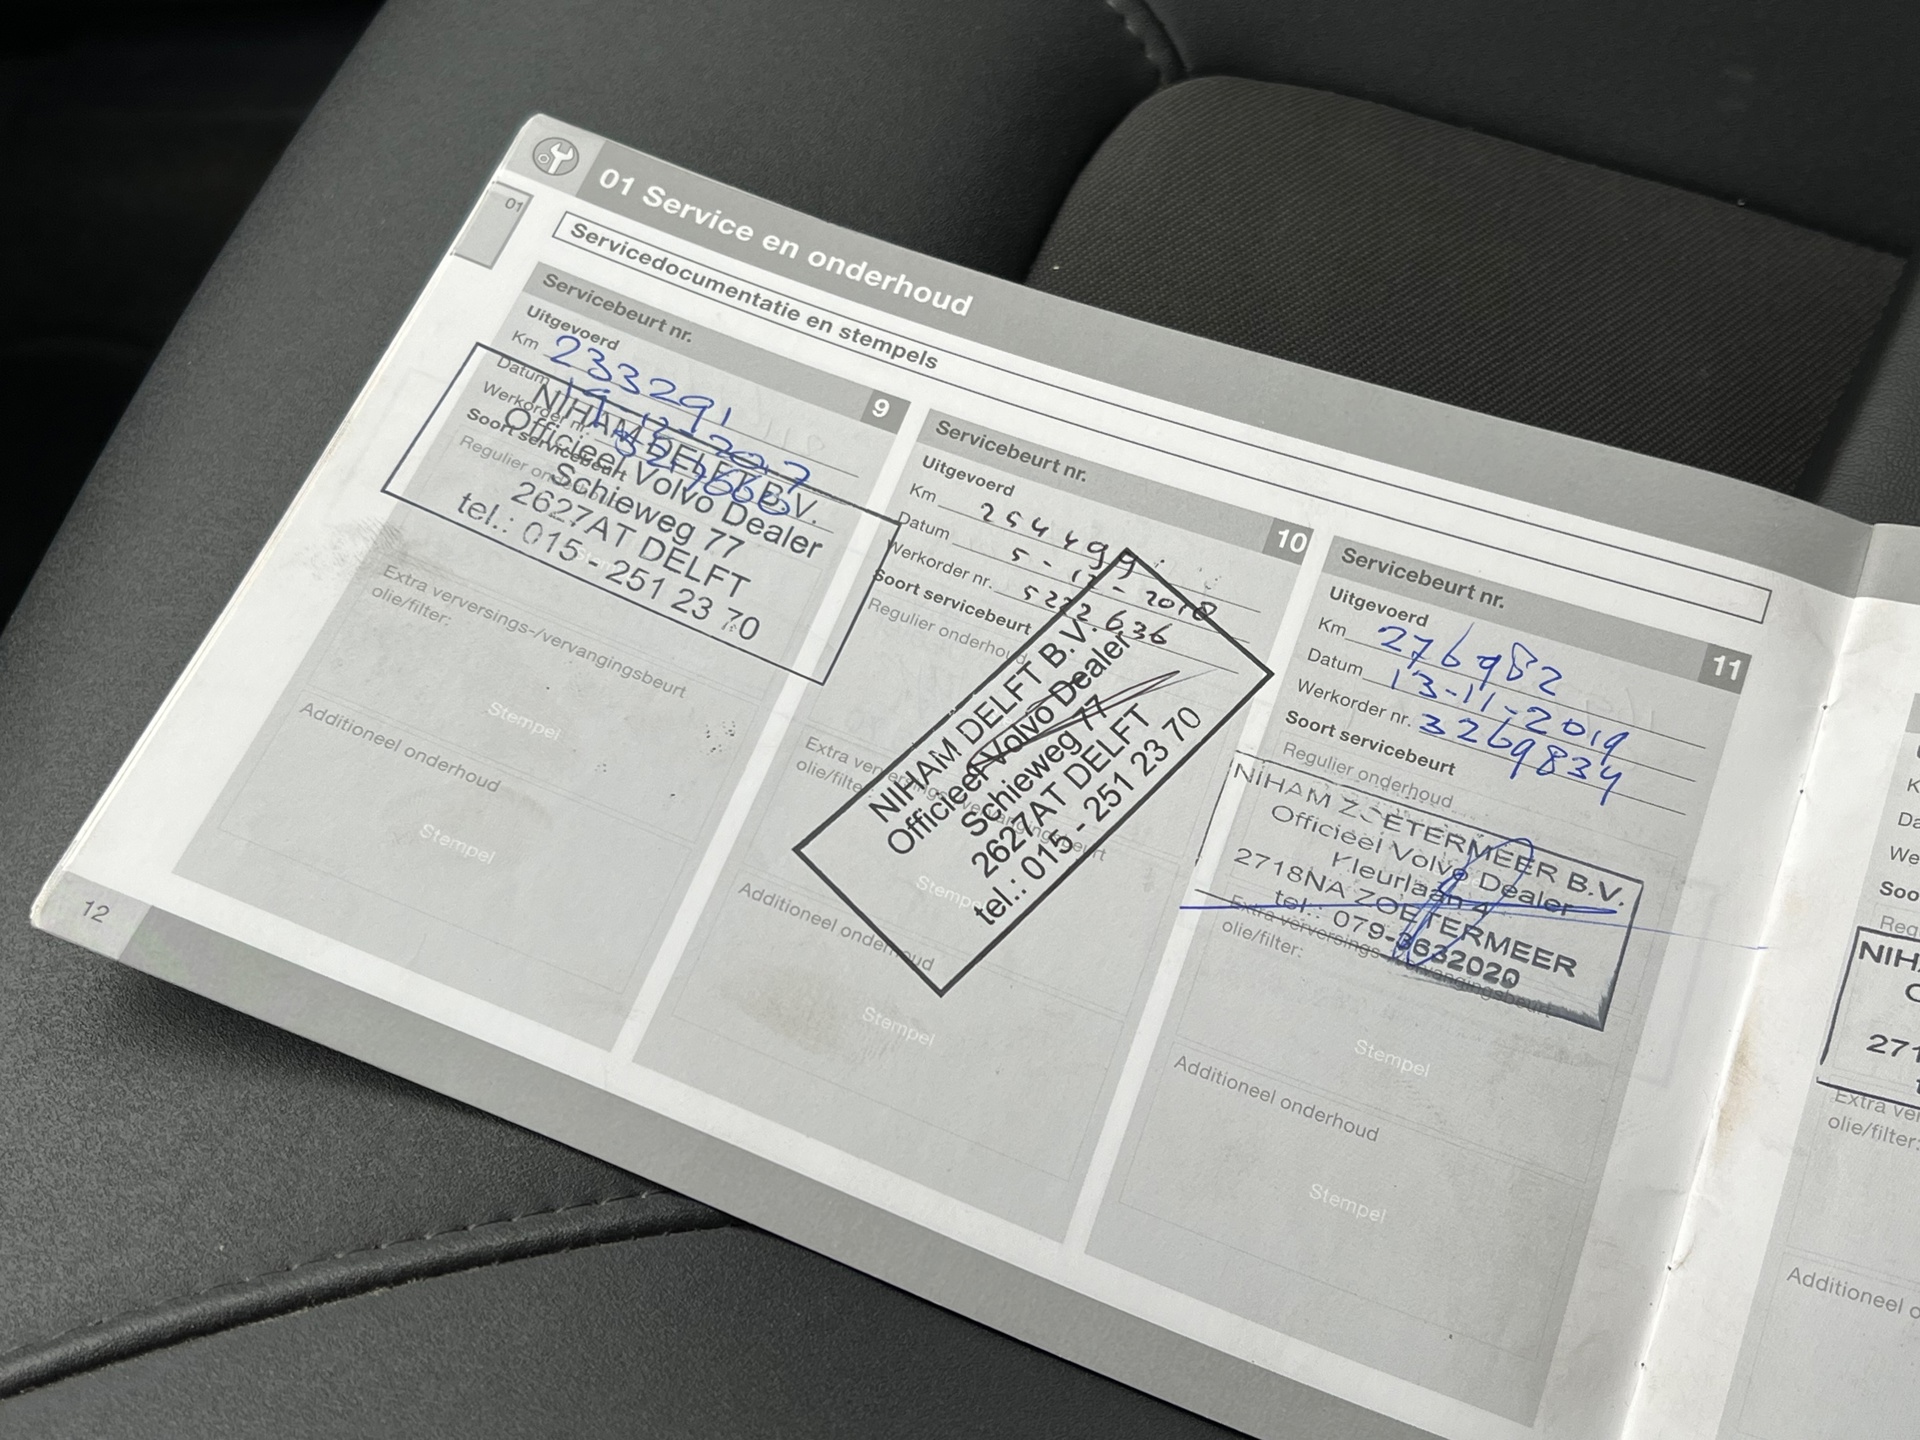 01 Service en onderhoud
01
Servicedocumentatie en stempels
Servicebeurt nr. 9
Uitgevoerd
Km 233291
Datum
Werkorder nr.
Soort servicebeurt
Regulier onderhoud
NIHAM DELFT B.V.
Officieel Volvo Dealer
Schieweg 77
2627AT DELFT
tel.: 015 - 251 23 70
Extra verversings-/vervangingsbeurt
olie/filter:
Stempel
Additioneel onderhoud
Stempel
Servicebeurt nr. 10
Uitgevoerd
Km 254499
Datum 5-12-2018
Werkorder nr. 5222636
Soort servicebeurt
Regulier onderhoud
NIHAM DELFT B.V.
Officieel Volvo Dealer
Schieweg 77
2627AT DELFT
tel.: 015 - 251 23 70
Extra verversings-/vervangingsbeurt
olie/filter:
Stempel
Additioneel onderhoud
Stempel
Servicebeurt nr. 11
Uitgevoerd
Km 276982
Datum 13-11-2019
Werkorder nr. 3269834
Soort servicebeurt
Regulier onderhoud
NIHAM ZOETERMEER B.V.
Officieel Volvo Dealer
Kleurlaan 4
2718NA ZOETERMEER
tel.: 079-3632020
Extra verversings-/vervangingsbeurt
olie/filter:
Stempel
Additioneel onderhoud
Stempel
12
NIH
271
olie/filter:
Additioneel o